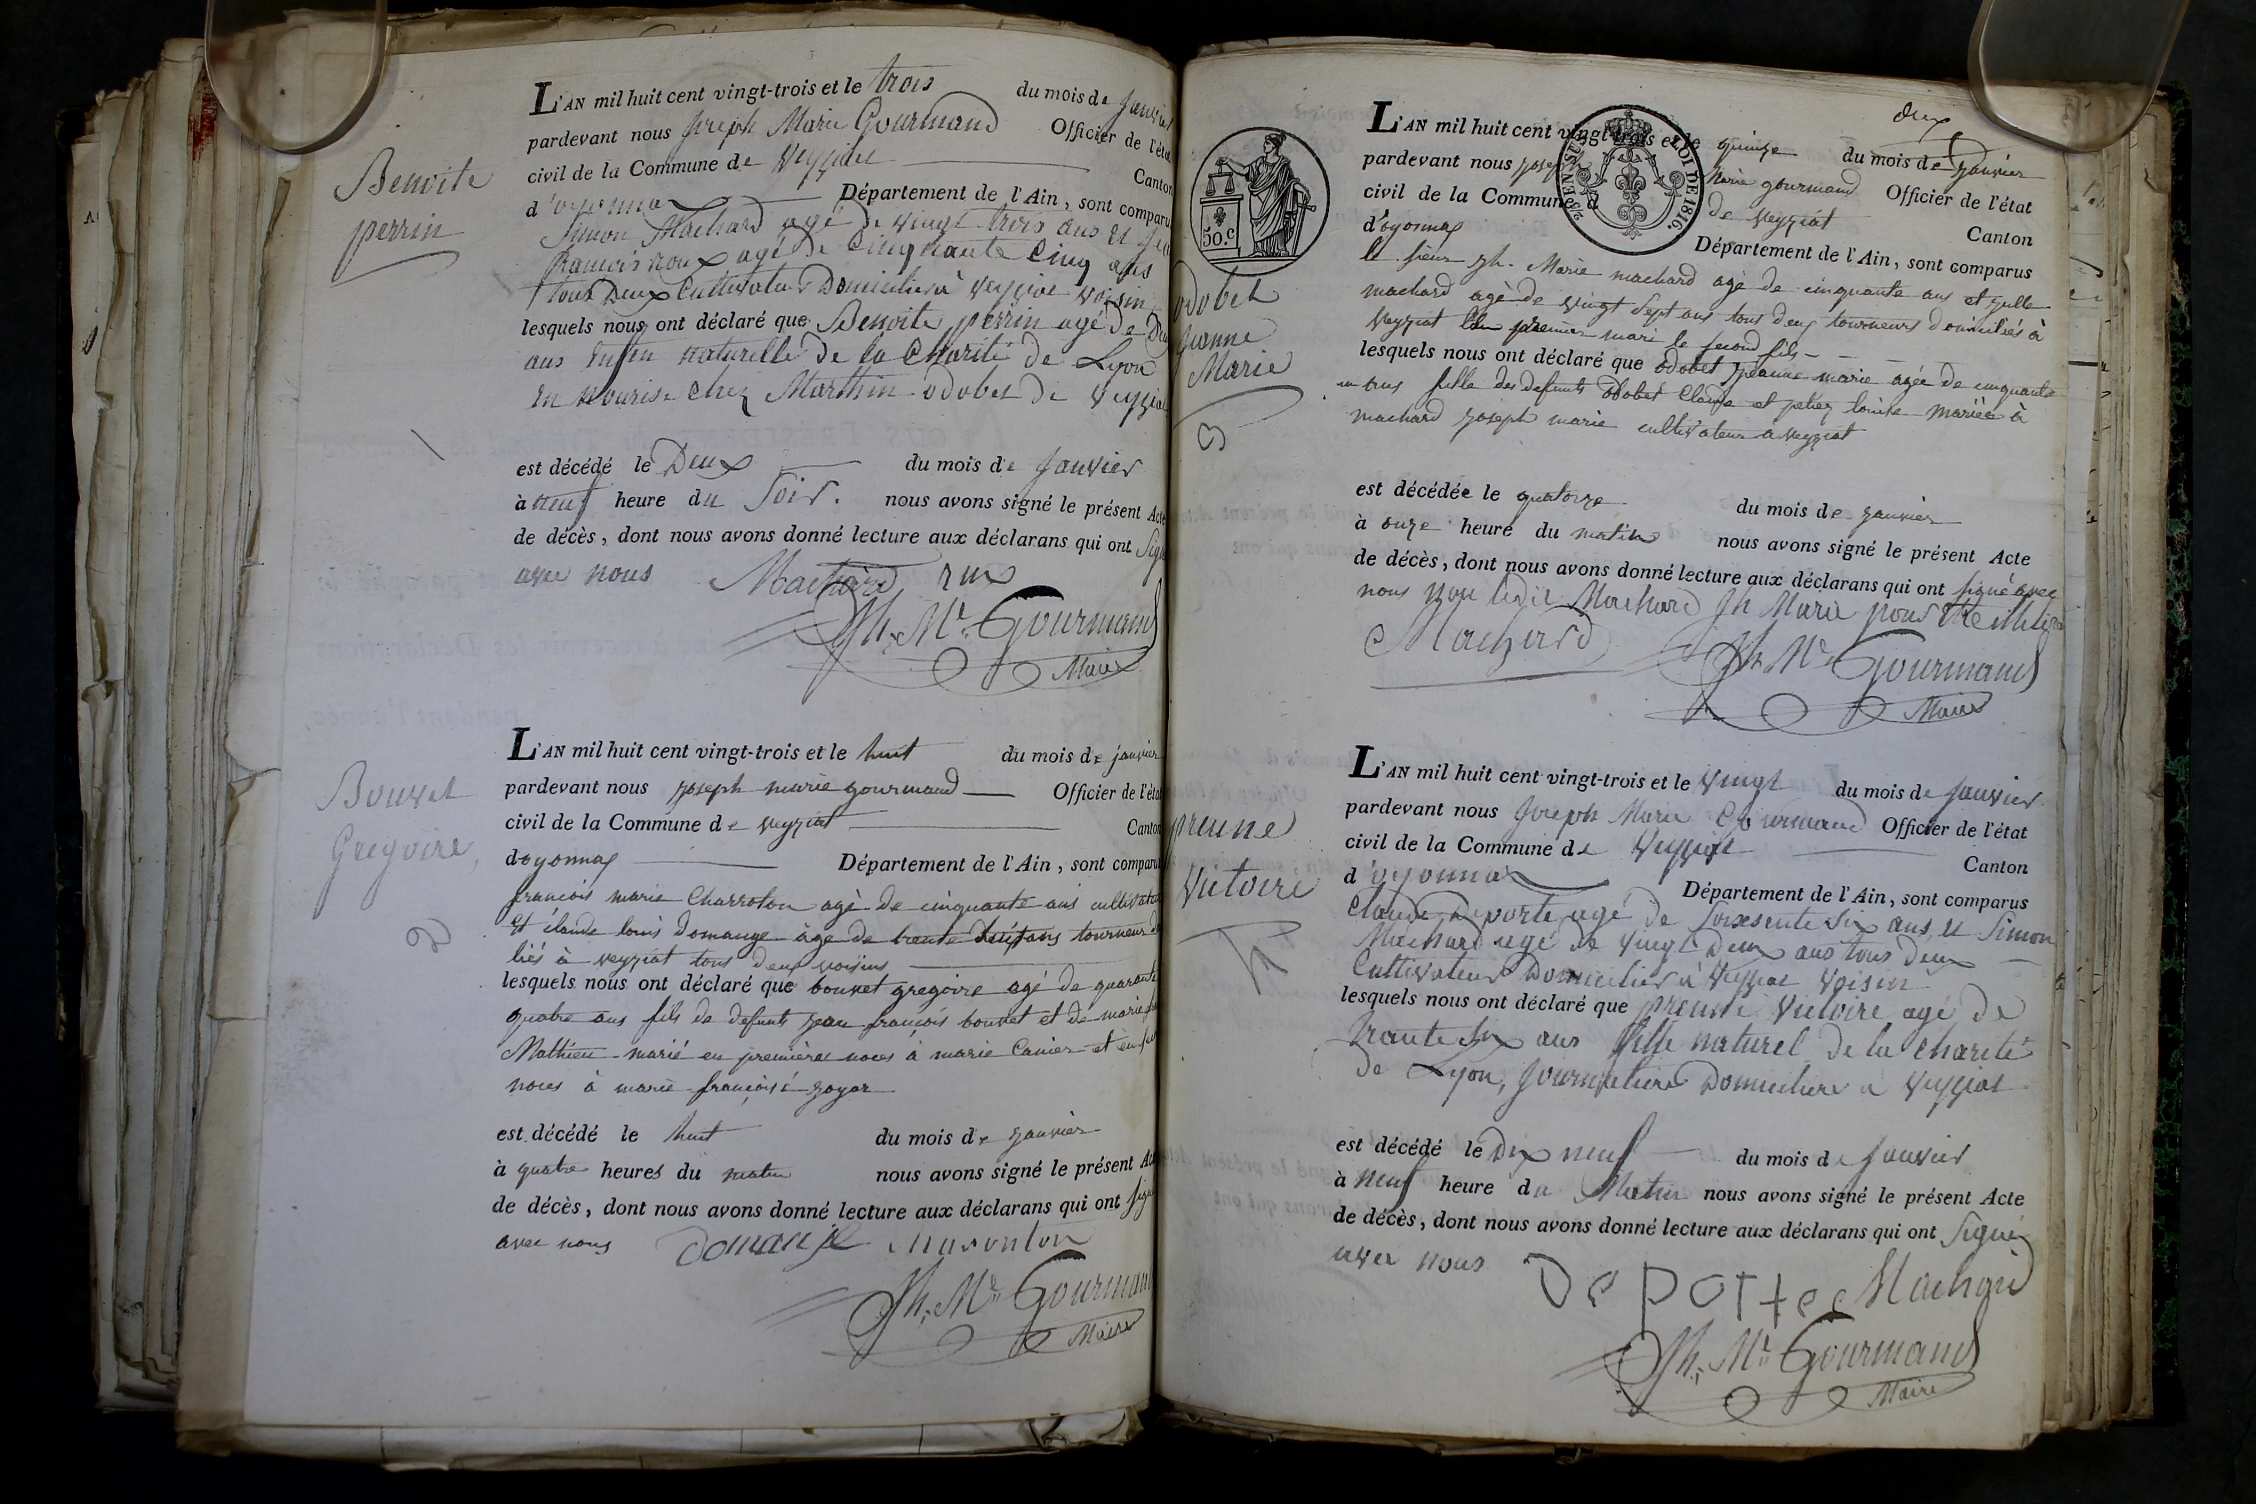 Benoite
perrin
1
L'AN mil huit cent vingt-trois et le trois du mois de Janvier
pardevant nous Joseph Marie Gourmand Officier de l'état
civil de la Commune de Veyziat Canton
d'oyonnax Département de l'Ain, sont comparu
Simon Machard agé de vingt trois ans et
françois roux agé de Cinquante Cinq ans
tous Deux Cultivateur Domicilier à Veyziat voisin
lesquels nous ont déclaré que Benoite perrin agé de
ans enfen naturelle de la Charité de Lyon
En Nourise Chez Marthin odobet de Veyziat
est décédé le Deux du mois de Janvier
à neuf heure du Soir. nous avons signé le présent Acte
de décès, dont nous avons donné lecture aux déclarans qui ont Signé
avec nous Machard rux
Jh. Me. Gourmand
Maire
Bouvet
Gregoire,
2
L'AN mil huit cent vingt-trois et le huit du mois de janvier
pardevant nous joseph marie gourmand Officier de l'état
civil de la Commune de veyziat Canton
d'oyonnax Département de l'Ain, sont comparu
francois marie Charroton agé de cinquante ans cultivateur
et claude louis Domange âgé de trente ans tourneur
liés à veyziat tous deux voisins
lesquels nous ont déclaré que bouvet gregoire agé de quarante
quatre ans fils de defunts jean françois bouvet et de marie
Mathieu marié en premières noces à marie Canier et en
noces à marie françoise
est décédé le huit du mois de janvier
à quatre heures du matin nous avons signé le présent Acte
de décès, dont nous avons donné lecture aux déclarans qui ont signé
avec nous Domange
Jh. Me. Gourmand
Maire
deux
SEL
50.c
LOI DE 1816.
odobet
jeanne
Marie
3
L'AN mil huit cent vingt-trois et le quinze du mois de janvier
pardevant nous joseph Marie gourmand Officier de l'état
civil de la Commune de veyziat Canton
d'oyonnax Département de l'Ain, sont comparus
le sieur jh. Marie machard agé de cinquante ans et
machard agé de vingt Sept ans tous deux tourneurs domiciliés à
veyziat le premier mari le second fils
lesquels nous ont déclaré que odobet jeanne marie agée de cinquante
ans fille des defunts odobet Claude et mariée à
machard joseph marie cultivateur à veyziat
est décédée le quatorze du mois de janvier
à onze heure du matin nous avons signé le présent Acte
de décès, dont nous avons donné lecture aux déclarans qui ont signé avec
nous Non ledit Machard Jh Marie pour
Machard
Jh. Me. Gourmand
Maire
preune
Victoire
4
L'AN mil huit cent vingt-trois et le Vingt du mois de Janvier
pardevant nous Joseph Marie Gourmand Officier de l'état
civil de la Commune de Veyziat Canton
d'oyonnax Département de l'Ain, sont comparus
Claude Deporte agé de Soixsente Six ans, et Simon
Machard agé de Vingt Deux ans tous deux
Cultivateur Domicilier à Veyziat Voisin
lesquels nous ont déclaré que preune Victoire agé de
trante Six ans fille naturel de la Charité
de Lyon, Journaliere Domiciliere à Veyziat
est décédé le Dix neuf du mois de Janvier
à Neuf heure du Matin nous avons signé le présent Acte
de décès, dont nous avons donné lecture aux déclarans qui ont Signé
avec nous Deporte Machard
Jh. Me. Gourmand
Maire